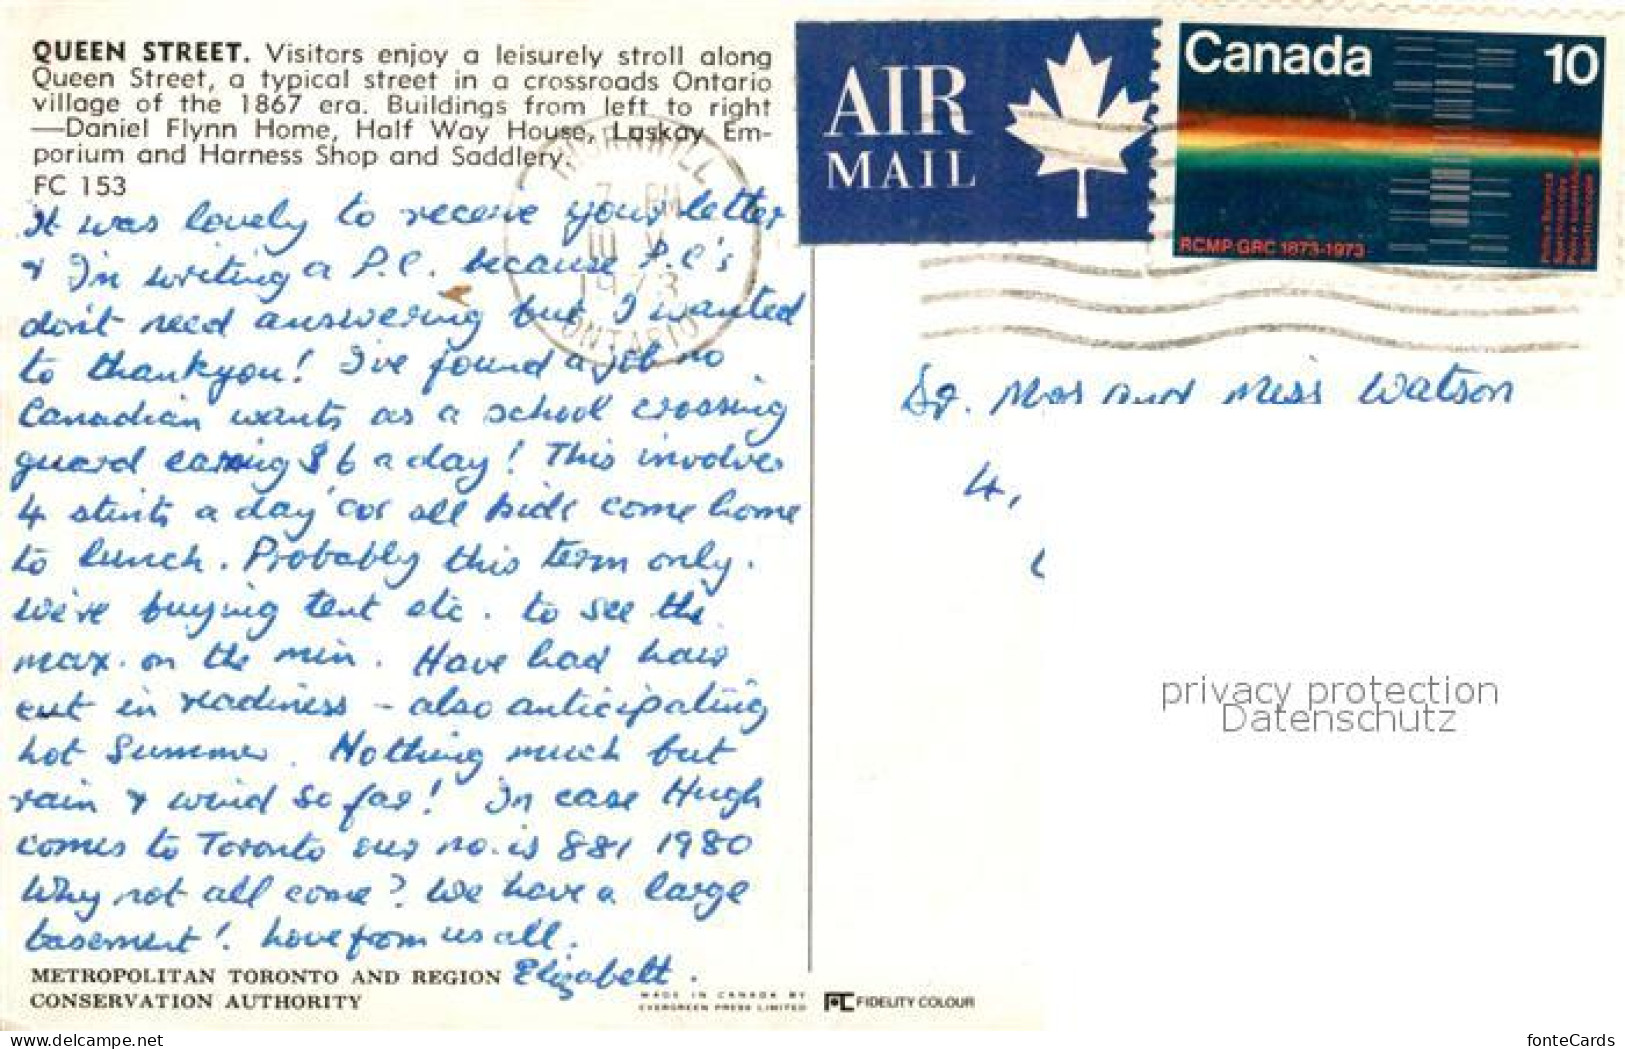 QUEEN STREET. Visitors enjoy a leisurely stroll along
Queen Street, a typical street in a crossroads Ontario
village of the 1867 era. Buildings from left to right
—Daniel Flynn Home, Half Way House, Laskay Em-
porium and Harness Shop and Saddlery.
FC 153
It was lovely to receive your letter
& I'm writing a P.C. because P.C's
don't need answering but I wanted
to thankyou! I've found a job no
Canadian wants as a school crossing
guard earning $6 a day! This involves
4 stints a day cos all kids come home
to lunch. Probably this term only.
We're buying tent etc. to see the
max. on the min. Have had hair
cut in readiness - also anticipating
hot Summer. Nothing much but
rain & wind so far! In case Hugh
comes to Toronto our no. is 881 1980
Why not all come? We have a large
basement! Love from us all.
Elizabeth.
METROPOLITAN TORONTO AND REGION
CONSERVATION AUTHORITY
MADE IN CANADA BY
EVERGREEN PRESS LIMITED
FIDELITY COLOUR
AIR
MAIL
Canada 10
RCMP GRC 1873-1973
Police Science
Spectroscopy
Police scientifique
Spectroscopie
THORNHILL
7 PM
10 V
1973
ONTARIO
Mrs and Miss Watson
4,
privacy protection
Datenschutz
www.ansichtskarten-center.de
fonteCards